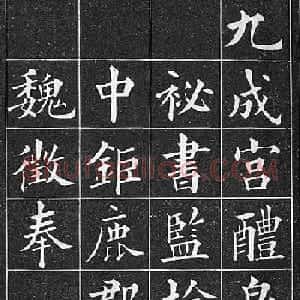 九成宮醴
祕書監
中鉅鹿郡
魏徵奉